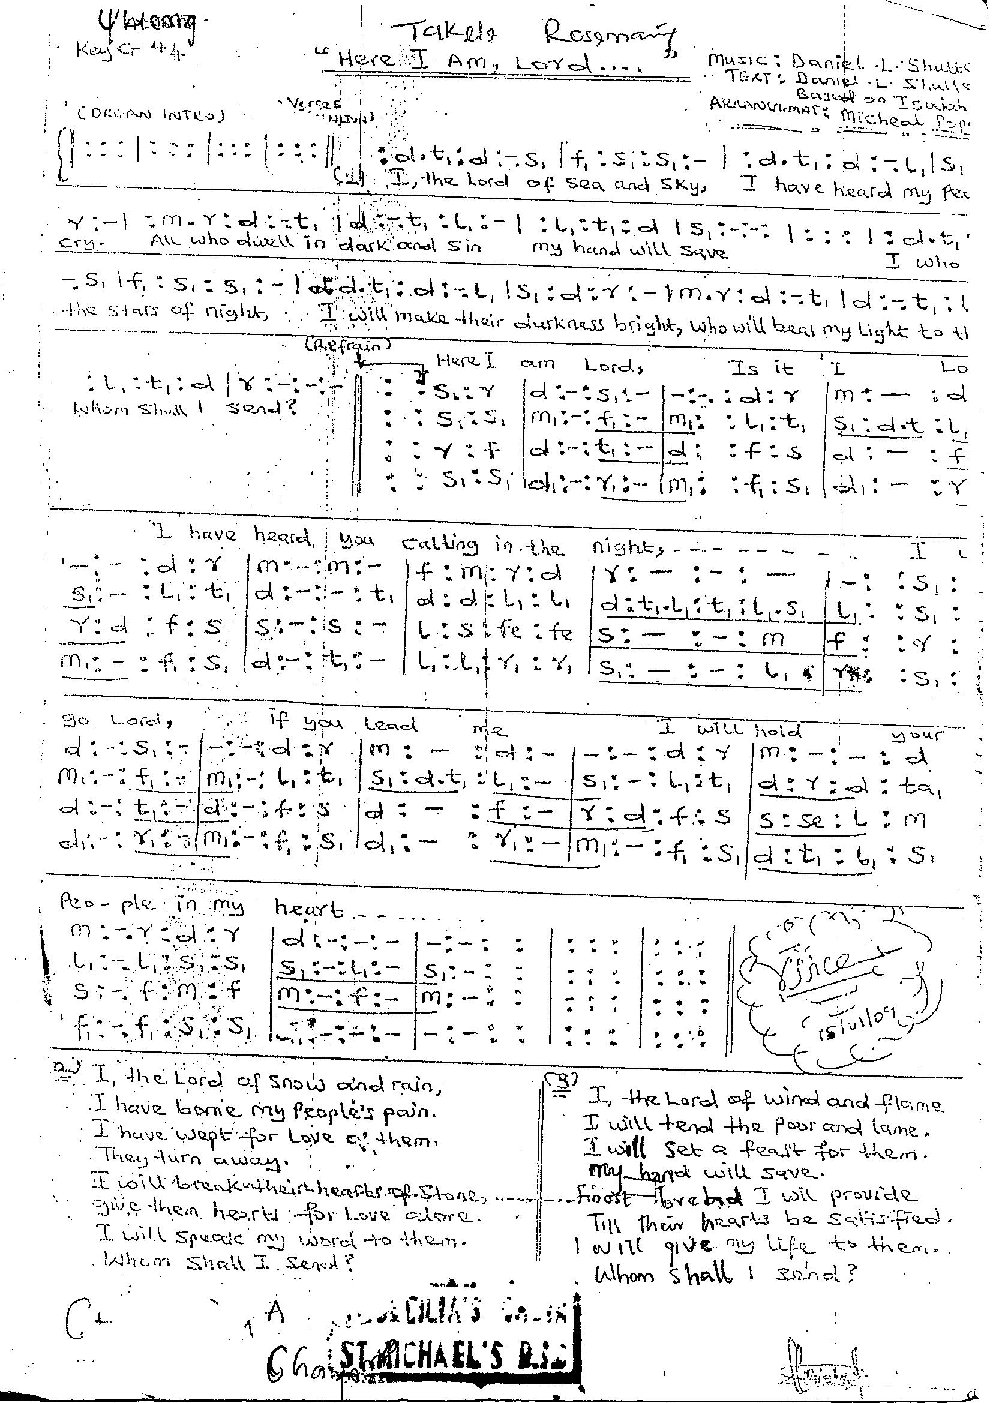 Takele Rosemary
Key G 44
"Here I Am, Lord...."
Music: Daniel .L. Shutts
TEXT: Daniel .L. Shutts
Based on Isaiah
ARRANGEMENT: Micheal Pop
(ORGAN INTRO)
Verses
{| : : : | : : : | : : : | : : : ||
(1) : d.t₁ : d : - s₁ | f₁ : s₁ : s₁ : - | : d.t₁ : d : - L₁ | s₁
I, the Lord of sea and sky, I have heard my Peo
r : - | : m.r : d : - t₁ | d : - t₁ : L₁ : - | : L₁ : t₁ : d | s₁ : - : - : - | : : : | : d.t₁
cry. All who dwell in dark and sin my hand will save I who
- s₁ | f₁ : s₁ : s₁ : - | d.t₁ : d : - L₁ | s₁ : d : r : - | m.r : d : - t₁ | d : - t₁ : L
the stars of night, I will make their darkness bright, who will bear my light to th
(Refrain)
Here I am Lord, Is it I Lo
: L₁ : t₁ : d | r : - : - : - || : : s₁ : r | d : - : s₁ : - | - : - : d : r | m : - : d
Whom shall I send? : : s₁ : s₁ | m₁ : - : f₁ : - | m₁ : : L₁ : t₁ | s₁ : d.t₁ : L₁
: : r : f | d : - : t₁ : - | d : : f : s | d : - : f
: : s₁ : s₁ | d₁ : - : r₁ : - | m₁ : : f₁ : s₁ | d₁ : - : r
I have heard you calling in the night, - - - - - - - - I
- : - : d : r | m : - : m : - | f : m : r : d | r : - : - : - | - : : s₁ :
s₁ : - : L₁ : t₁ | d : - : - : t₁ | d : d : L₁ : L₁ | d : t₁.L₁ : t₁ : L₁.s₁ | L₁ : : s₁ :
r : d : f : s | s : - : s : - | L : s : fe : fe | s : - : - : m | f : : r :
m₁ : - : f₁ : s₁ | d : - : t₁ : - | L₁ : L₁ : r₁ : r₁ | s₁ : - : - : L₁ | r : : s₁ :
go Lord, if you lead me I will hold your
d : - : s₁ : - | - : - : d : r | m : - : d : - | - : - : d : r | m : - : - : d
m₁ : - : f₁ : - | m₁ : - : L₁ : t₁ | s₁ : d.t₁ : L₁ : - | s₁ : - : L₁ : t₁ | d : r : d : ta₁
d : - : t₁ : - | d : - : f : s | d : - : f : - | r : d : f : s | s : se : L : m
d₁ : - : r₁ : - | m₁ : - : f₁ : s₁ | d₁ : - : r₁ : - | m₁ : - : f₁ : s₁ | d : t₁ : L₁ : s₁
Peo - ple in my heart.........
m : - r : d : r | d : - : - : - | - : - : : | : : : | : : : ||
L₁ : - L₁ : s₁ : s₁ | s₁ : - L₁ : - | s₁ : - : : | : : : | : : : ||
s : - f : m : f | m : - f : - | m : - : : | : : : | : : : ||
f₁ : - f₁ : s₁ : s₁ | : - : - : - | - : - : : | : : : | : : : ||
15/11/09
2. I, the Lord of snow and rain,
I have borne my People's pain.
I have wept for Love of them.
They turn away.
I will break their hearts of stone,
give them hearts for Love alone.
I will speak my word to them.
Whom shall I send?
(3) I, the Lord of wind and flame
I will tend the Poor and lame.
I will set a feast for them.
my hand will save.
finest bread I will provide
Till their hearts be satisfied.
I will give my life to them.
Whom shall I send?
ST. MICHAEL'S